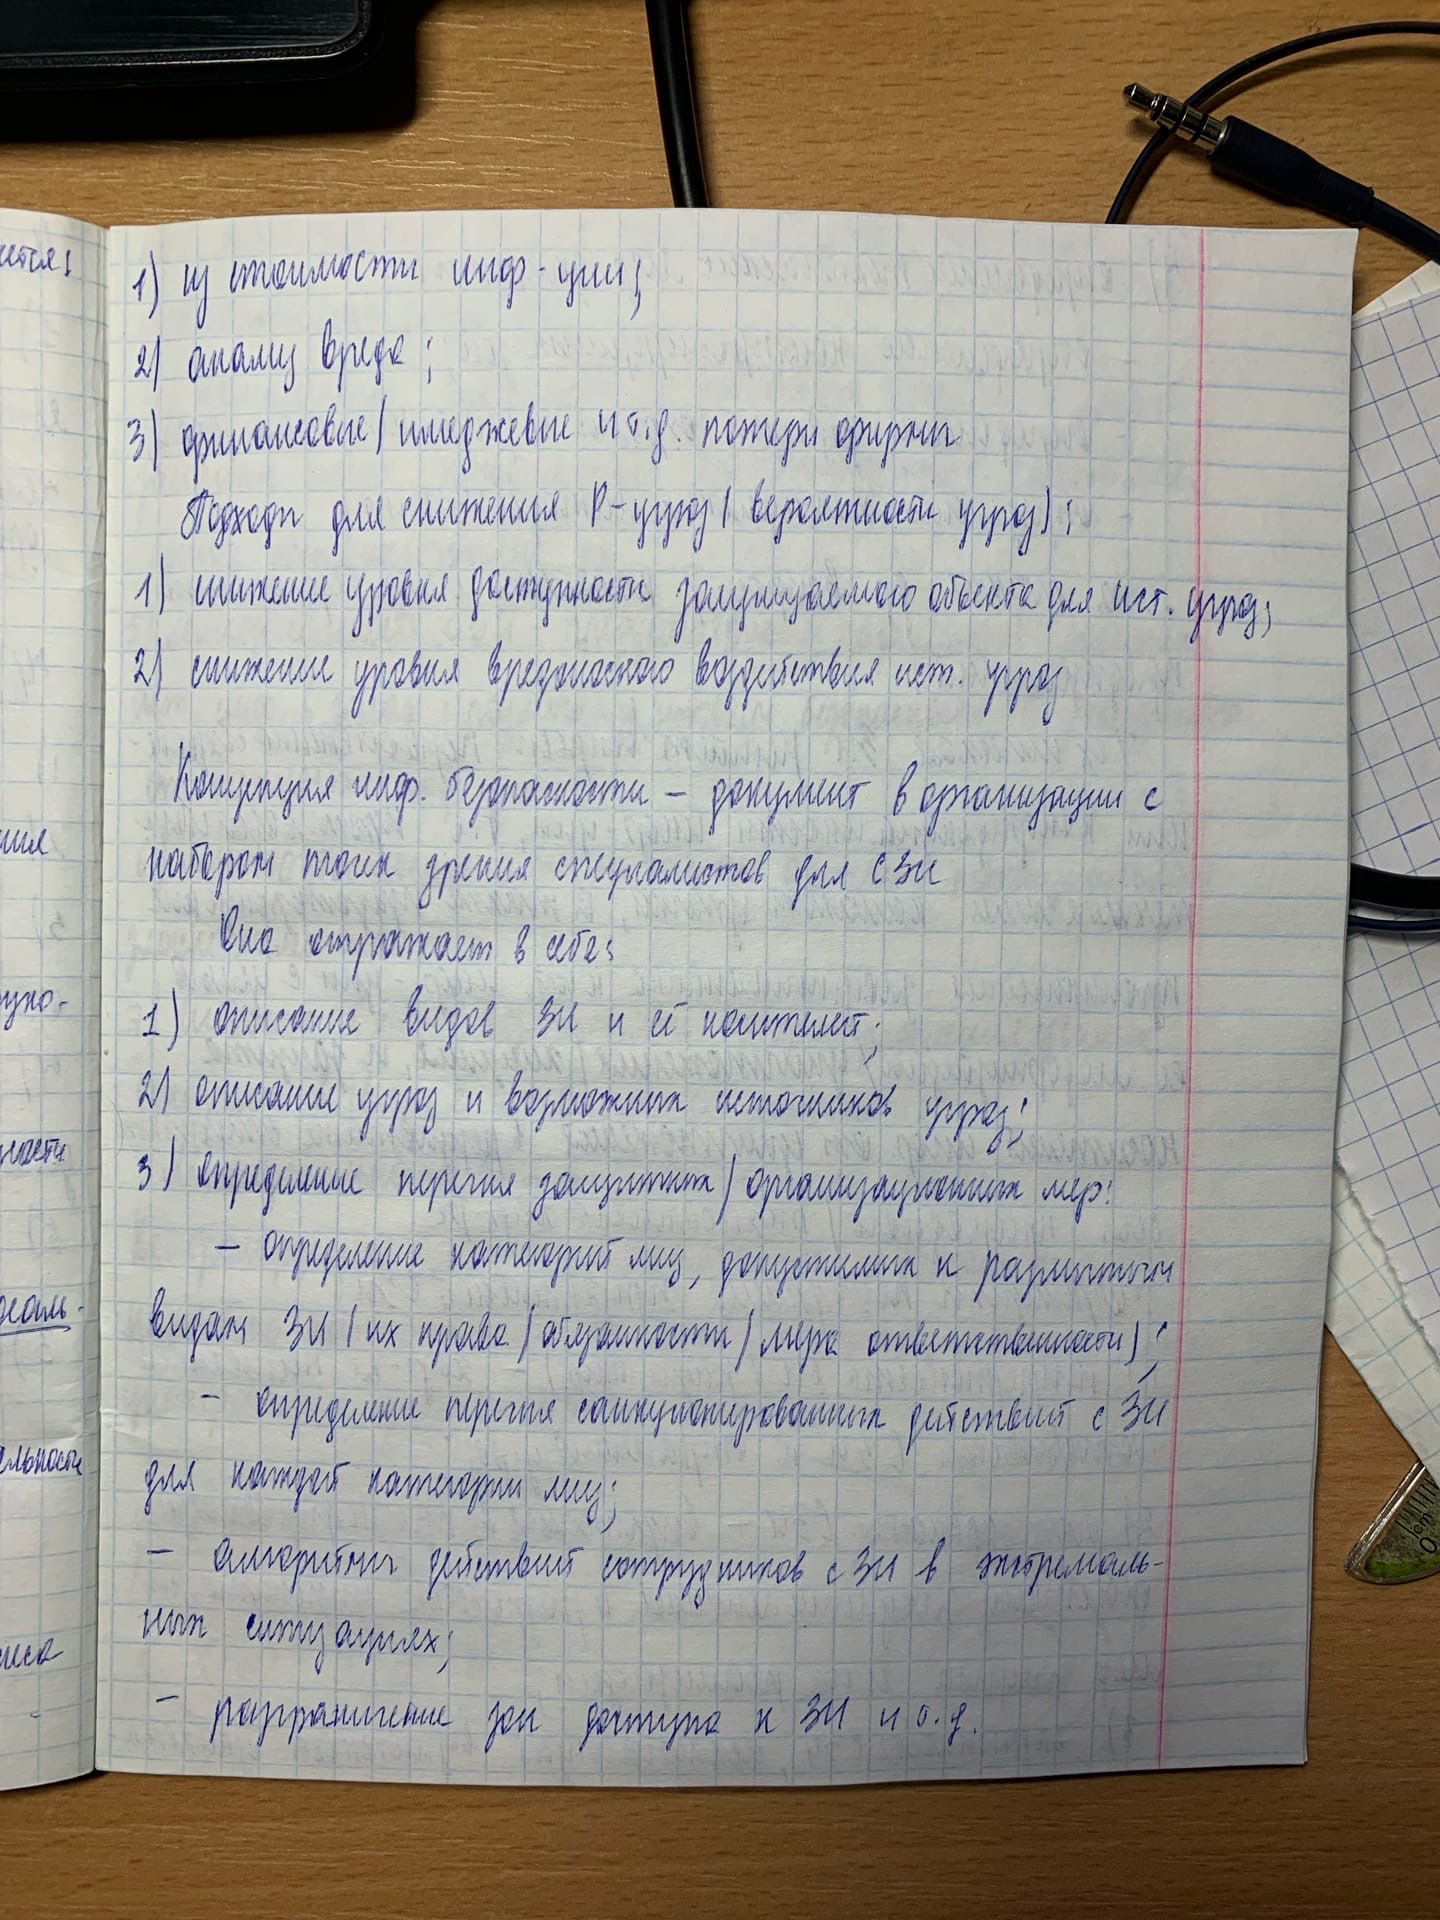 1) из стоимости инф-ции;
2) анализ вреда;
3) финансовые/имеджевые и т.д. потери фирмы
Подходы для снижения P-угроз (вероятности угроз):
1) снижение уровня доступности защищаемого объекта для ист. угроз;
2) снижение уровня вредоносного воздействия ист. угроз
Концепция инф. безопасности – документ в организации с
набором точек зрения специалистов для СЗИ
Она отражает в себе:
1) описание видов ЗИ и её носителей;
2) описание угроз и возможных источников угроз;
3) определение перечня защитных/организационных мер:
– определение категорий лиц, допустимых к различным
видам ЗИ (их права/обязанности/мера ответственности);
– определение перечня санкционированных действий с ЗИ
для каждой категории лиц;
– алгоритмы действий сотрудников с ЗИ в экстремаль-
ных ситуациях;
– разграничение зон доступа к ЗИ и т.д.